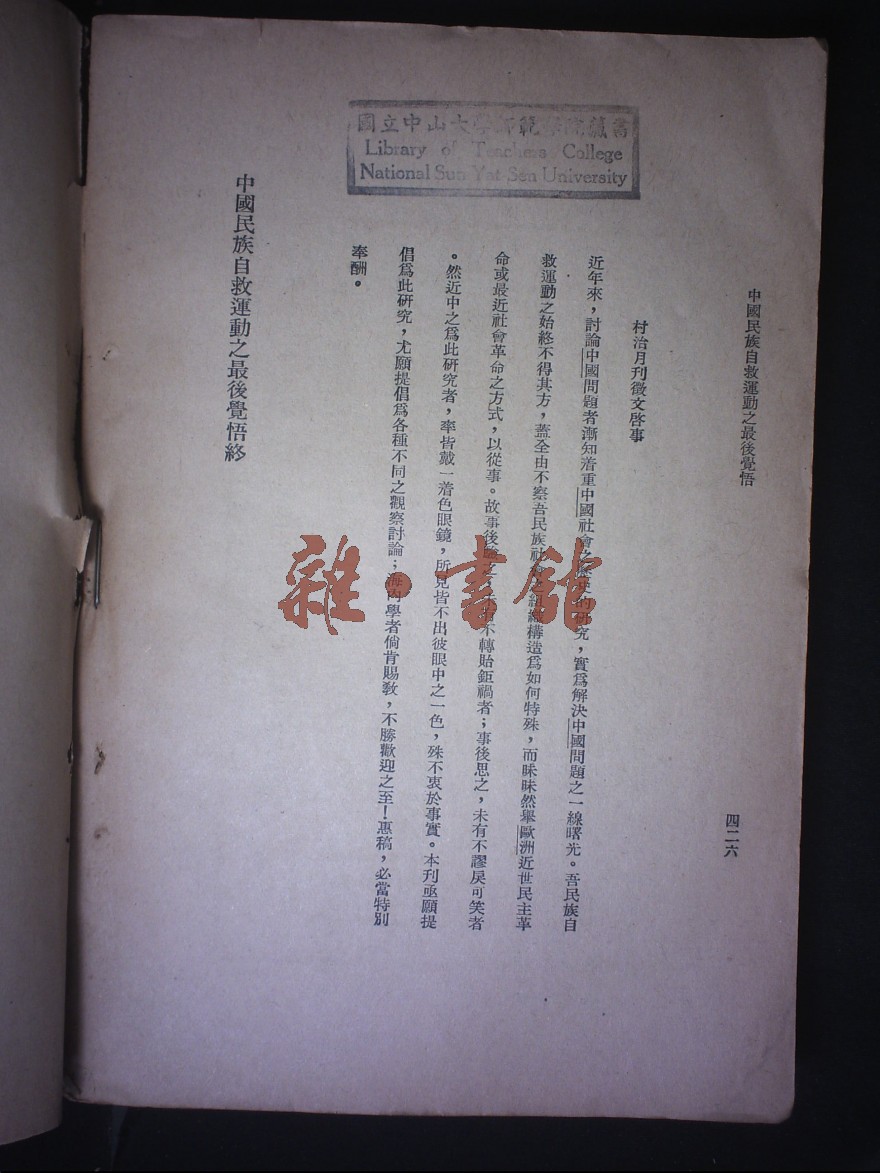 國立中山大學師範學院藏書
Library of Teachers College
National Sun Yat-Sen University
中國民族自救運動之最後覺悟
四二六
村治月刊徵文啓事
近年來，討論中國問題者漸知着重中國社會之歷史的研究，實爲解決中國問題之一線曙光。吾民族自
救運動之始終不得其方，蓋全由不察吾民族社會之組織構造爲如何特殊，而昧昧然舉歐洲近世民主革
命或最近社會革命之方式，以從事。故事後不轉貽鉅禍者；事後思之，未有不謬戾可笑者
。然近中之爲此研究者，率皆戴一着色眼鏡，所見皆不出彼眼中之一色，殊不衷於事實。本刊亟願提
倡爲此研究，尤願提倡爲各種不同之觀察討論；海內學者倘肯賜敎，不勝歡迎之至！惠稿，必當特別
奉酬。
中國民族自救運動之最後覺悟終
雜·書館